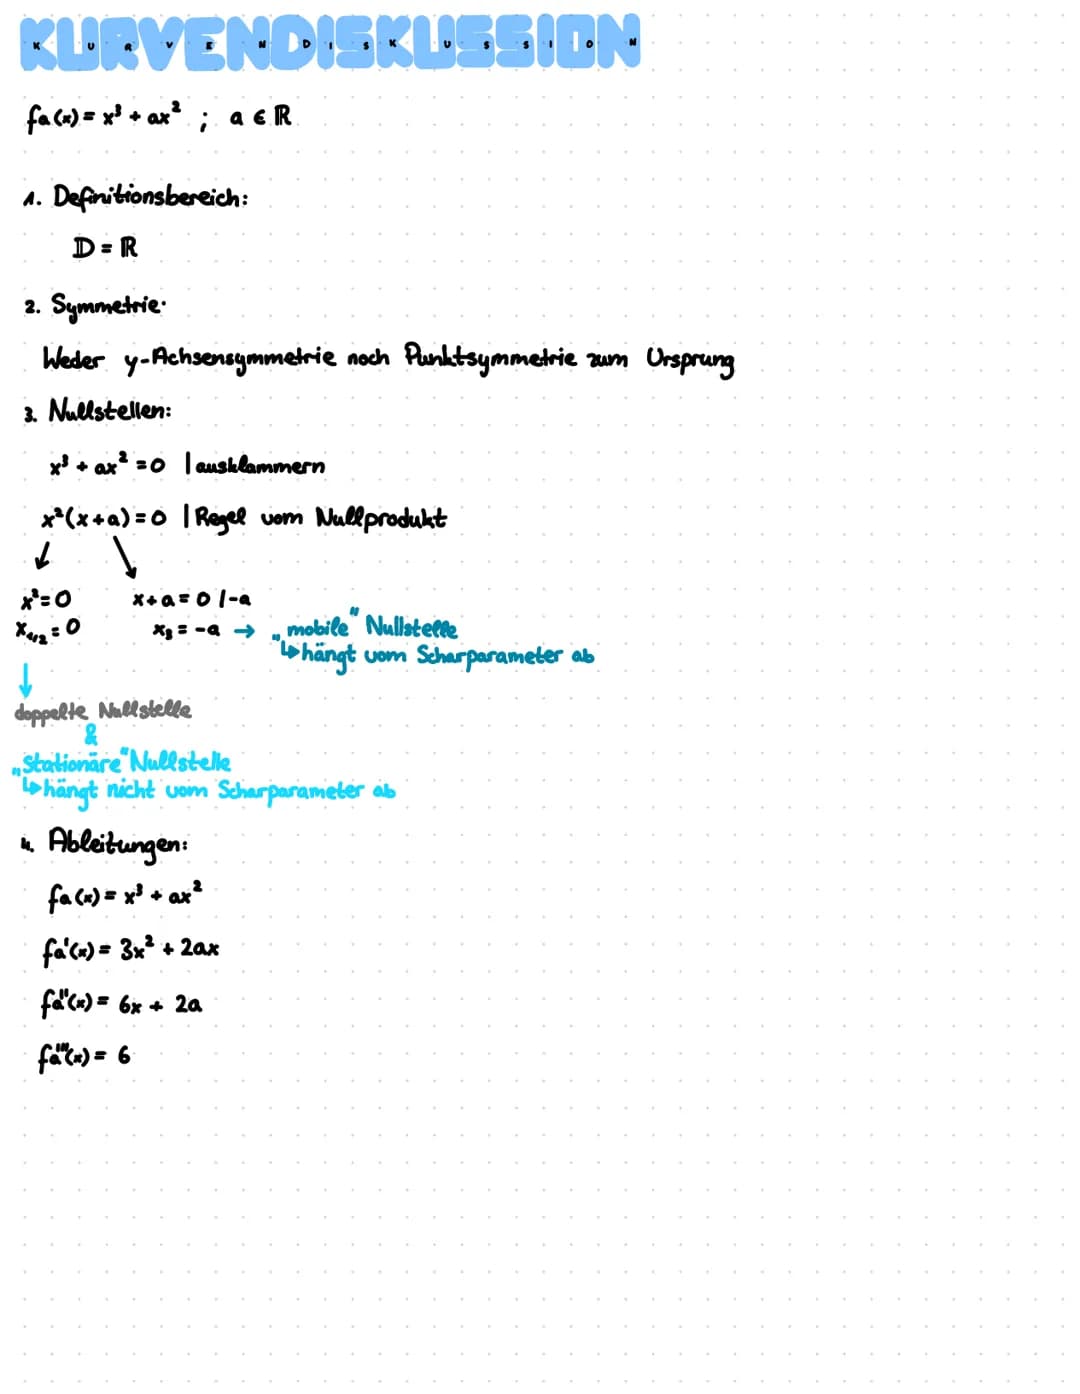 KURVENDISKUSSION
fa(x) = x³ + ax² ; a ∈ ℝ
1. Definitionsbereich:
𝔻 = ℝ
2. Symmetrie:
Weder y-Achsensymmetrie noch Punktsymmetrie zum Ursprung
3. Nullstellen:
x³ + ax² = 0 | ausklammern
x²(x+a) = 0 | Regel vom Nullprodukt
↙ ↘
x² = 0 x + a = 0 | -a
x₁/₂ = 0 x₃ = -a → „mobile“ Nullstelle
↳ hängt vom Scharparameter ab
↓
doppelte Nullstelle
&
„Stationäre“ Nullstelle
↳ hängt nicht vom Scharparameter ab
4. Ableitungen:
fa(x) = x³ + ax²
fa'(x) = 3x² + 2ax
fa''(x) = 6x + 2a
fa'''(x) = 6